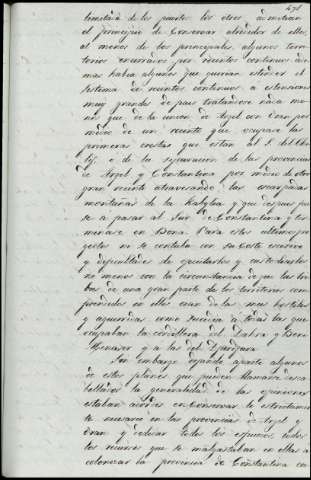 471
limitara de los puertos: los otros admitian
el principio de conservar alrededor de ellos,
al menos de los principales, algunos terri-
torios encerrados por recintos continuos: ade-
mas habia algunos que querian estender el
sistema de recintos continuos a estensiones
muy grandes de pais tratandose nada me-
nos que de la union de Argel con Oran por
medio de un recinto que ocupase las
primeras crestas que estan al S. del Che-
lif, o de la separacion de las provincias
de Argel y Constantina por medio de otro
gran recinto atravesando las escarpadas
montañas de la Kabylia y que despues pa-
se a pasar al Sur de Constantina y ter-
minase en Bona. Para estos ultimos pro-
yectos no se contaba con su coste escesivo
y dificultades de guardarlos y custodiarlos
no menos con la circunstancia de que las tri-
bus de una gran parte de los territorios com-
prendidos en ellos eran de las mas hostiles
y aguerridas como sucedia a todas las que
ocupaban la cordillera del Dahra y Beni
Menasser y a las del Djurjura.
Sin embargo dejando aparte algunos
de estos planes que pueden llamarse desca-
bellados la generalidad de las opiniones
estaban acordes en conservar lo estrictamen-
te necesario en las provincias de Argel y
Oran y colocar todos los esfuerzos, todos
los recursos que se malgastaban en ellas a
colonizar la provincia de Constantina en